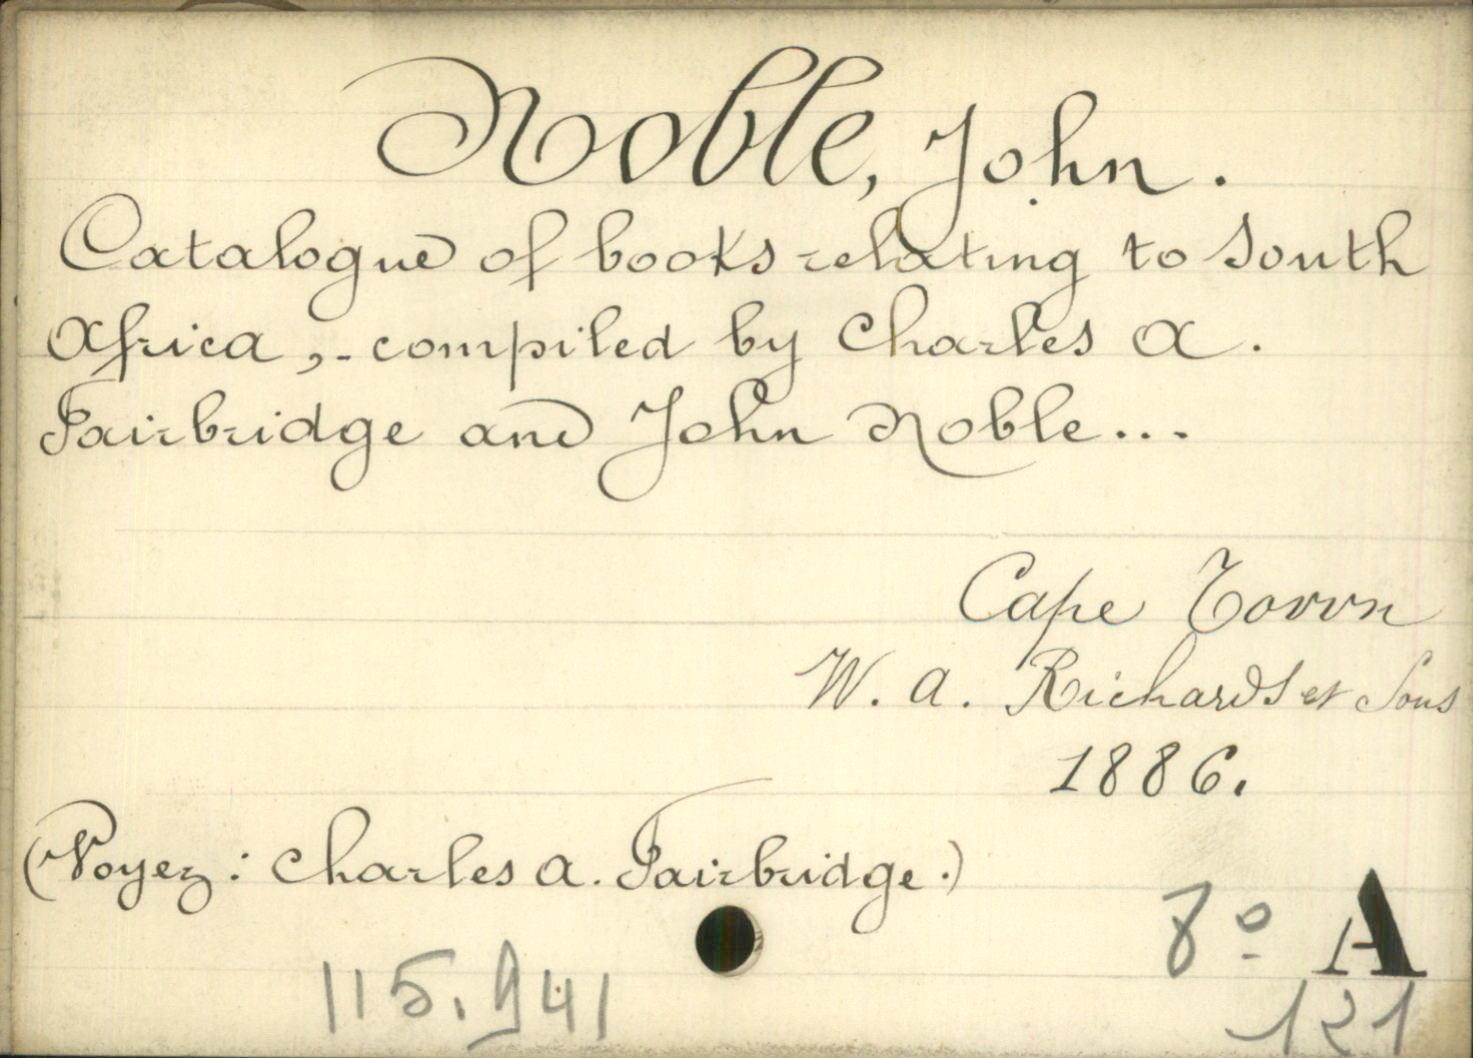 Noble, John.
Catalogue of books relating to South
Africa, - compiled by Charles A.
Fairbridge and John Noble...
Cape Town
W. A. Richards et Sons
1886.
(Voyez: Charles A. Fairbridge.)
8º A
115.941
121